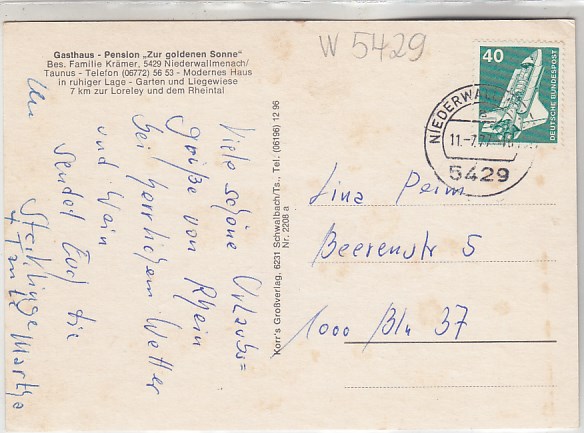 Gasthaus - Pension „Zur goldenen Sonne“
Bes. Familie Krämer, 5429 Niederwallmenach/
Taunus - Telefon (06772) 56 53 - Modernes Haus
in ruhiger Lage - Garten und Liegewiese
7 km zur Loreley und dem Rheintal
W 5429
40
DEUTSCHE BUNDESPOST
NIEDERWAL
11.-7.77
5429
Viele schöne Urlaubs=
grüße vom Rhein
bei herrlichem Wetter
und Wein
sendet Euch die
Stecklinge Martha
+ Tante
Korr's Großverlag, 6231 Schwalbach/Ts., Tel. (06196) 12 96
Nr. 2208 a
Lina Peim
Beerenstr 5
1000 Bln 37